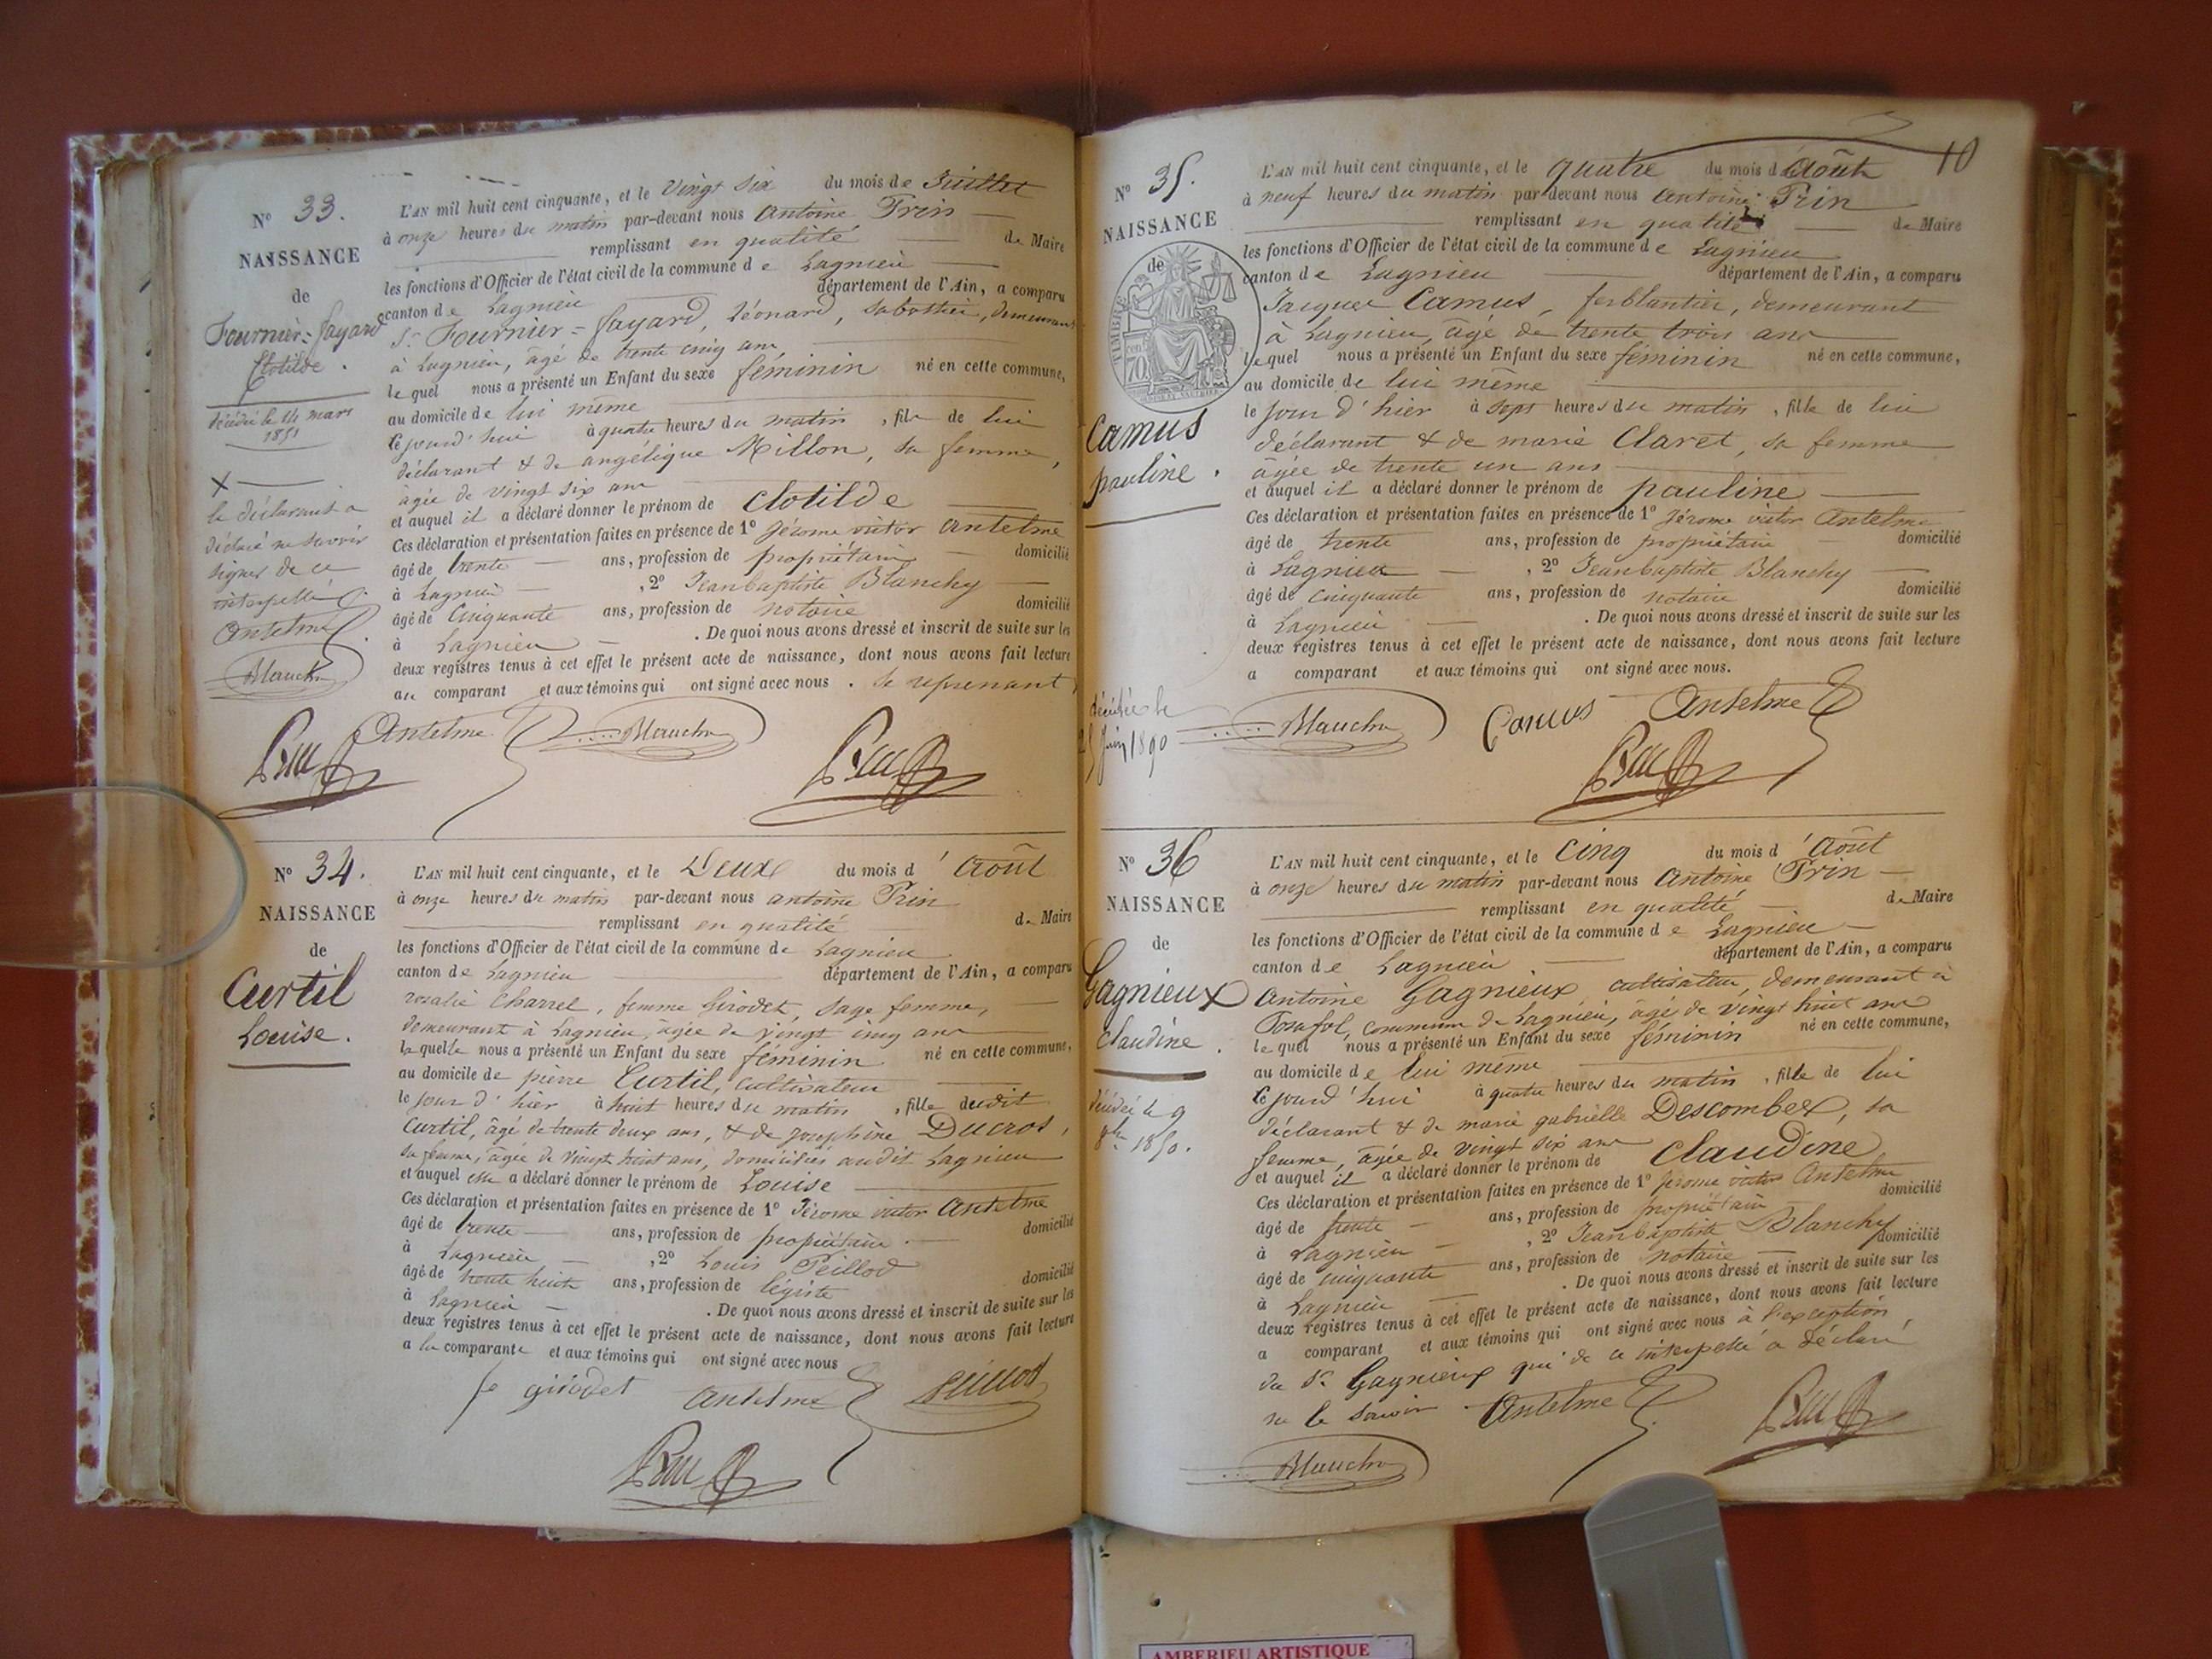 N° 33.
NAISSANCE
de
Fournier=fayard
Clotilde.
décédée le 14 mars
1851
X
le déclarant a
déclaré ne savoir
signer de ce
interpellé
Antelme
Blanchy
L'AN mil huit cent cinquante, et le vingt six du mois de Juillet
à onze heures du matin par-devant nous Antoine Prin
remplissant en qualité de Maire
les fonctions d'Officier de l'état civil de la commune de Lagnieu
canton de Lagnieu département de l'Ain, a comparu
Sr. Fournier=fayard, Léonard, sabottier, demeurant
à Lagnieu, âgé de trente cinq ans,
lequel nous a présenté un Enfant du sexe féminin né en cette commune,
au domicile de lui même
Cejourd'hui à quatre heures du matin, fille de lui
déclarant & de angélique Millon, sa femme,
âgée de vingt six ans
et auquel il a déclaré donner le prénom de Clotilde
Ces déclaration et présentation faites en présence de 1° Jérome victor Antelme
âgé de trente ans, profession de propriétaire domicilié
à Lagnieu, 2° Jeanbaptiste Blanchy
âgé de Cinquante ans, profession de notaire domicilié
à Lagnieu. De quoi nous avons dressé et inscrit de suite sur les
deux registres tenus à cet effet le présent acte de naissance, dont nous avons fait lecture
au comparant et aux témoins qui ont signé avec nous.
Antelme Blanchy
N° 34.
NAISSANCE
de
Curtil
Louise.
L'AN mil huit cent cinquante, et le Deux du mois d'Août
à onze heures du matin par-devant nous antoine Prin
remplissant en qualité de Maire
les fonctions d'Officier de l'état civil de la commune de Lagnieu
canton de Lagnieu département de l'Ain, a comparu
rosalie Charrel, femme Girodet, sage femme,
demeurant à Lagnieu, âgée de vingt cinq ans
laquelle nous a présenté un Enfant du sexe féminin né en cette commune,
au domicile de pierre Curtil, cultivateur
le jour d'hier à huit heures du matin, fille dudit
Curtil, âgé de trente deux ans, & de Joséphine Ducros,
sa femme, âgée de vingt huit ans, domiciliés audit Lagnieu
et auquel elle a déclaré donner le prénom de Louise
Ces déclaration et présentation faites en présence de 1° Jérome victor Antelme
âgé de trente ans, profession de propriétaire. domicilié
à Lagnieu, 2° Louis Peillod
âgé de trente huit ans, profession de légiste domicilié
à Lagnieu. De quoi nous avons dressé et inscrit de suite sur les
deux registres tenus à cet effet le présent acte de naissance, dont nous avons fait lecture
a la comparante et aux témoins qui ont signé avec nous
fe girodet Antelme Peillod
10
N° 35.
NAISSANCE
de
TIMBRE
70
Camus
pauline.
décédée le
25 Juin 1890
L'AN mil huit cent cinquante, et le quatre du mois d'Août
à neuf heures du matin par-devant nous Antoine Prin
remplissant en qualité de Maire
les fonctions d'Officier de l'état civil de la commune de Lagnieu
canton de Lagnieu département de l'Ain, a comparu
Jacques Camus, ferblantier, demeurant
à Lagnieu, âgé de trente trois ans
lequel nous a présenté un Enfant du sexe féminin né en cette commune,
au domicile de lui même
le jour d'hier à sept heures du matin, fille de lui
déclarant & de marie Claret, sa femme
âgée de trente un ans
et auquel il a déclaré donner le prénom de pauline
Ces déclaration et présentation faites en présence de 1° Jérome victor Antelme
âgé de trente ans, profession de propriétaire domicilié
à Lagnieu, 2° Jeanbaptiste Blanchy
âgé de cinquante ans, profession de notaire domicilié
à Lagnieu. De quoi nous avons dressé et inscrit de suite sur les
deux registres tenus à cet effet le présent acte de naissance, dont nous avons fait lecture
a comparant et aux témoins qui ont signé avec nous.
Blanchy Camus Antelme
N° 36
NAISSANCE
de
Gagnieux
Claudine.
décédée le 9
8bre 1850.
L'AN mil huit cent cinquante, et le Cinq du mois d'Août
à onze heures du matin par-devant nous Antoine Prin
remplissant en qualité de Maire
les fonctions d'Officier de l'état civil de la commune de Lagnieu
canton de Lagnieu département de l'Ain, a comparu
Antoine Gagnieux cultivateur, demeurant à
Posafol, commune de Lagnieu, âgé de vingt huit ans
lequel nous a présenté un Enfant du sexe féminin né en cette commune,
au domicile de lui même
Cejourd'hui à quatre heures du matin, fille de lui
déclarant & de marie gabrielle Descombes, sa
femme, âgée de vingt six ans
et auquel il a déclaré donner le prénom de Claudine
Ces déclaration et présentation faites en présence de 1° Jérome victor Antelme
âgé de trente ans, profession de propriétaire domicilié
à Lagnieu, 2° Jeanbaptiste Blanchy
âgé de cinquante ans, profession de notaire domicilié
à Lagnieu. De quoi nous avons dressé et inscrit de suite sur les
deux registres tenus à cet effet le présent acte de naissance, dont nous avons fait lecture
a comparant et aux témoins qui ont signé avec nous à l'exception
du Sr. Gagnieux qui de ce interpellé a déclaré
ne le savoir Antelme
Blanchy
AMBERIEU ARTISTIQUE